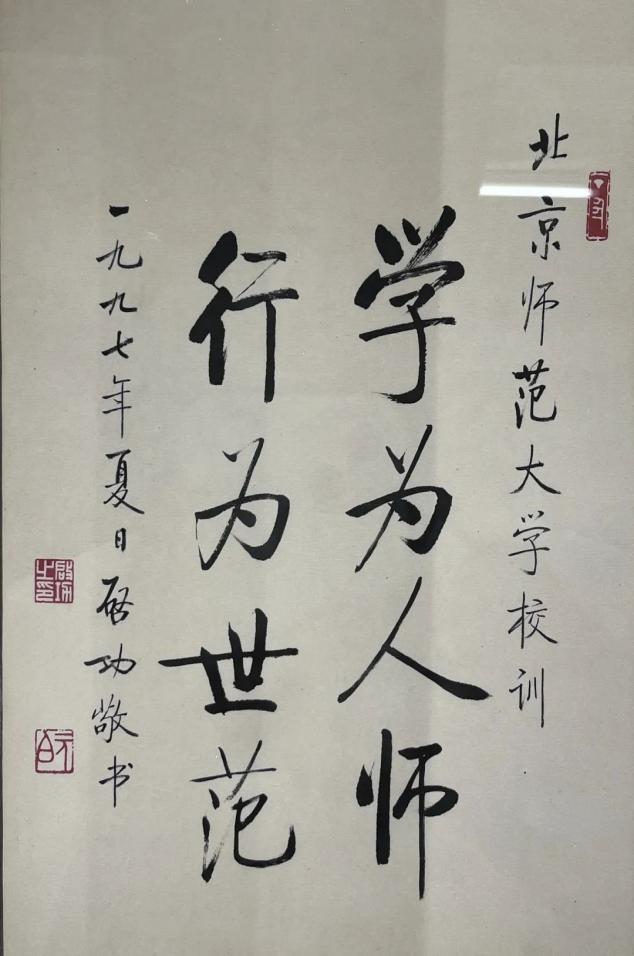 北京师范大学校训
学为人师
行为世范
一九九七年夏日启功敬书
启功之印